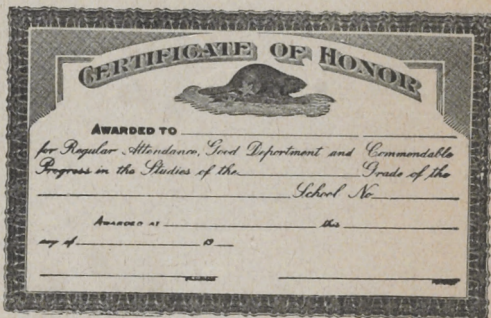 CERTIFICATE OF HONOR
AWARDED TO
for Regular Attendance, Good Deportment and Commendable
Progress in the Studies of the Grade of the
School No
AWARDED AT this
day of 19